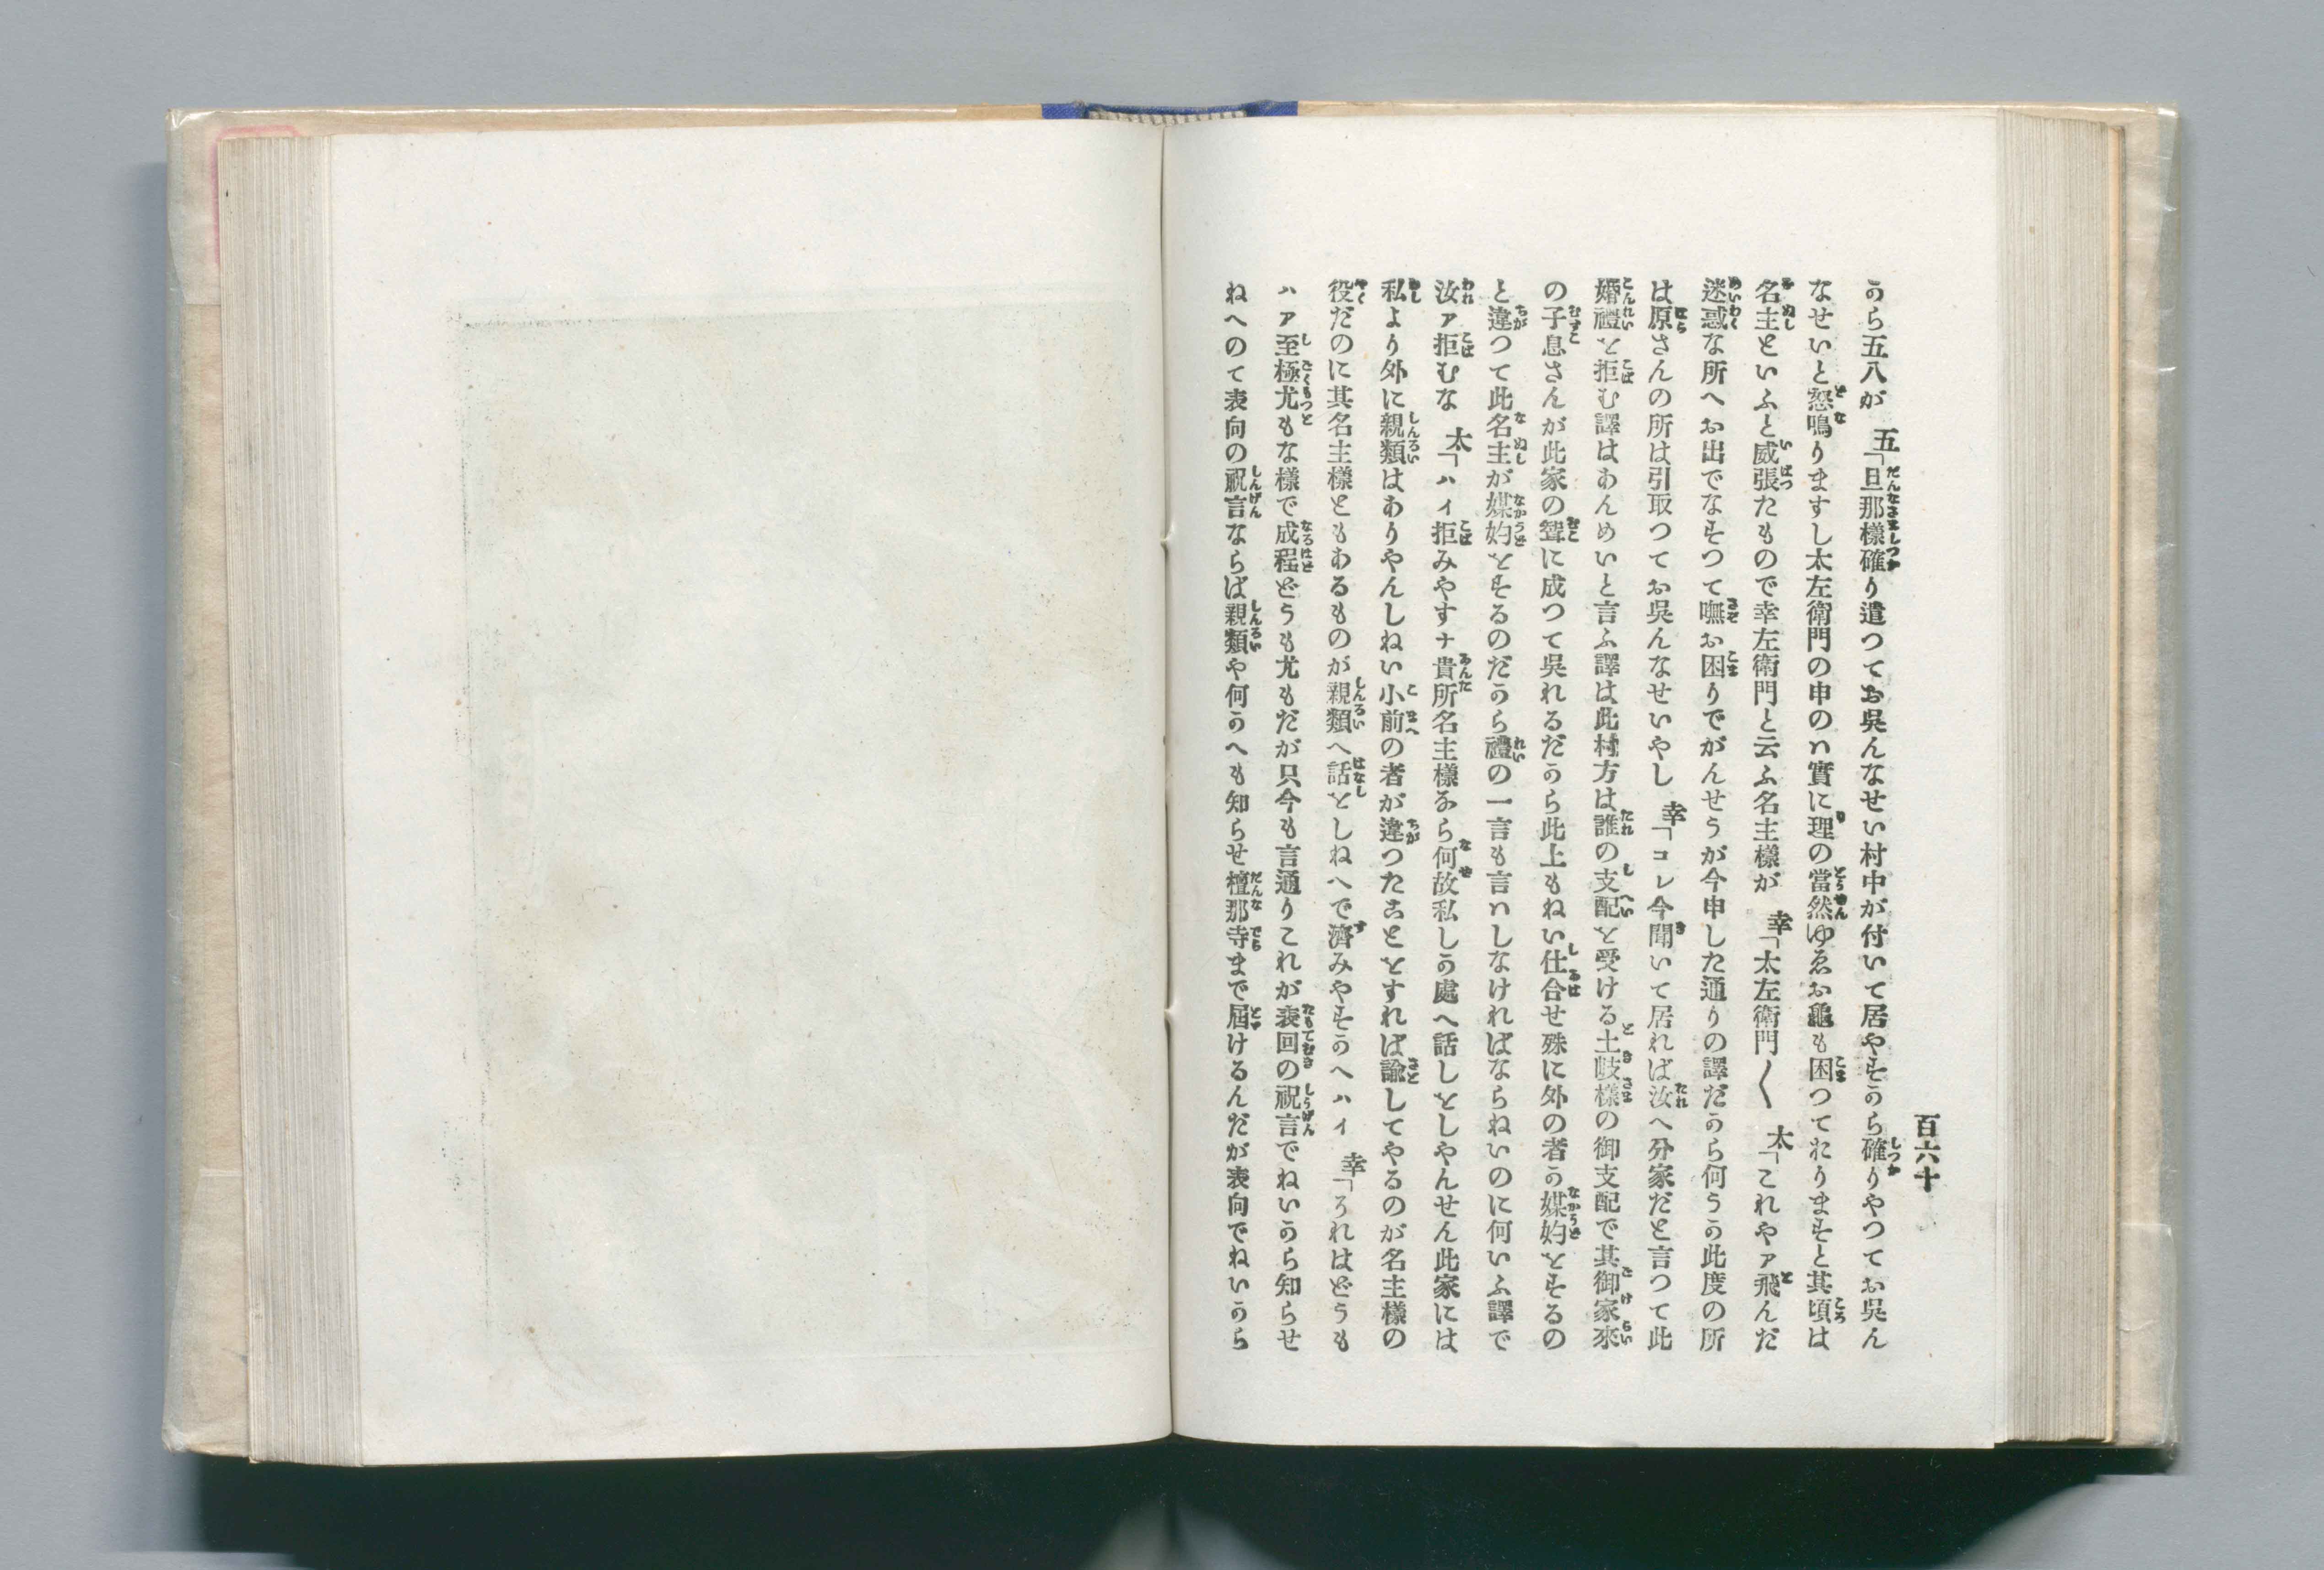 百六十
から五八が　五「旦那樣確り遣つてお呉んなせい村中が付いて居やすから確りやつてお呉ん
なせいと怒鳴りますし太左衛門の申のハ實に理の當然ゆゑお龜も困つてれりますと其頃は
名主といふと威張たもので幸左衛門と云ふ名主樣が　幸「太左衛門〱　太「これやァ飛んだ
迷惑な所へお出でなすつて嘸お困りでがんせうが今申した通りの譯だから何うか此度の所
は原さんの所は引取つてお呉んなせいやし　幸「コレ今聞いて居れば汝へ分家だと言つて此
婚禮を拒む譯はあんめいと言ふ譯は此村方は誰の支配を受ける土岐樣の御支配で其御家來
の子息さんが此家の聟に成つて呉れるだから此上もねい仕合せ殊に外の者か媒妁をするの
と違つて此名主が媒妁をするのだから禮の一言も言ハしなければならねいのに何いふ譯で
汝ァ拒むな　太「ハイ拒みやすナ貴所名主樣るら何故私しか處へ話しをしやんせん此家には
私より外に親類はありやんしねい小前の者が違つたことをすれば諭してやるのが名主樣の
役だのに其名主樣ともあるものが親類へ話をしねへで濟みやすかへハイ　幸「うれはどうも
ハァ至極尤もな樣で成程どうも尤もだが只今も言通りこれが表回の祝言でねいから知らせ
ねへのて表向の祝言ならば親類や何かへも知らせ檀那寺まで屆けるんだが表向でねいから